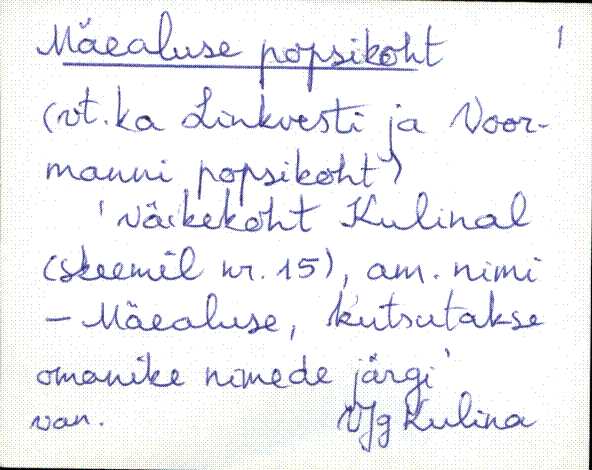 Mäealuse popsikoht 1
(vt. ka Linkvesti ja Voor-
manni popsikoht)
'väikekoht Kulinal
(skeemil nr. 15), am. nimi
- Mäealuse, kutsutakse
omanike nimede järgi'
van. VJg Kulina